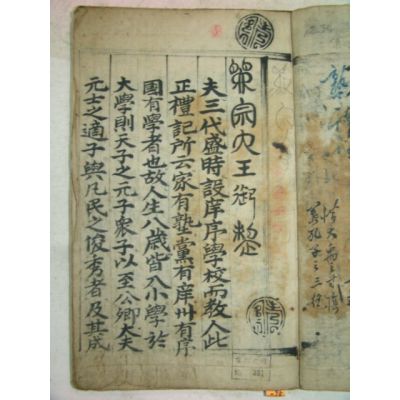 宗大王御製
夫三代盛時設庠序學校而教人此
正禮記所云家有塾黨有庠州有序
國有學者也故人生八歲皆入小學於
大學則天子之元子衆子以至公卿大夫
元士之適子與凡民之俊秀者及其成